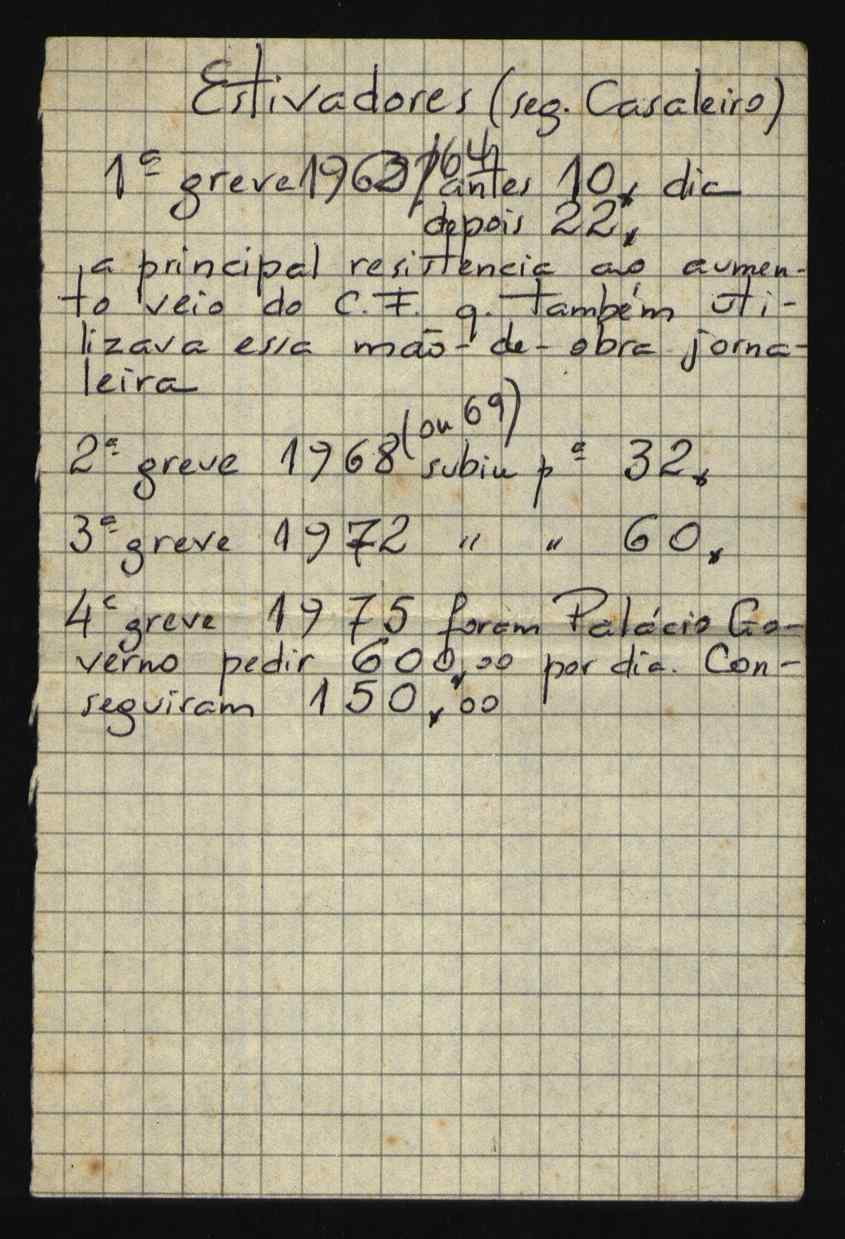 Estivadores (seg. Casaleiro)
1ª greve 1963 /64 antes 10$ dia
depois 22$
a principal resistência ao aumen-
to veio do C.F. q. também uti-
lizava essa mão-de-obra jorna-
leira
2ª greve 1968 (ou 69) subiu pª 32$
3ª greve 1972 " " 60$
4ª greve 1975 foram Palácio Go-
verno pedir 600$00 por dia. Con-
seguiram 150$00